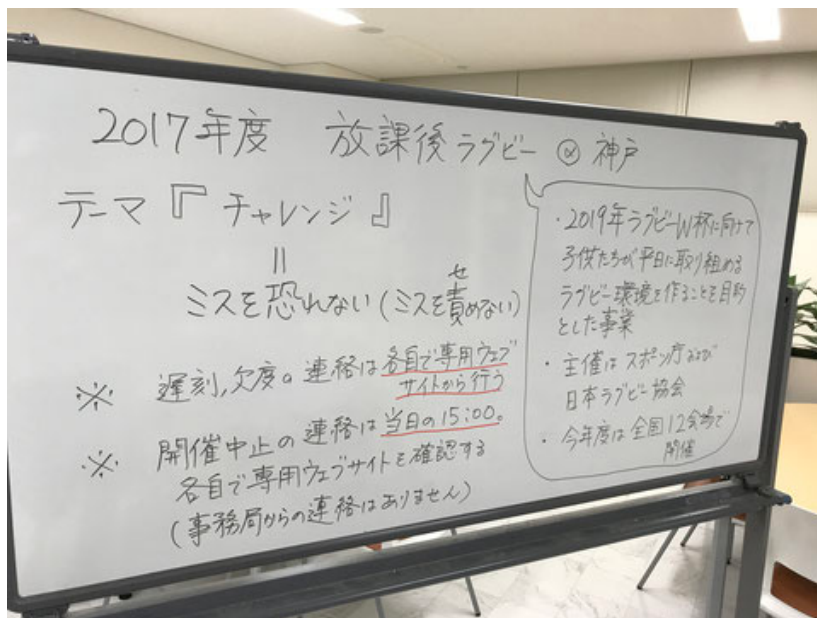 2017年度 放課後ラグビー @ 神戸
テーマ『チャレンジ』
=
せ
ミスを恐れない(ミスを責めない)
※ 遅刻,欠度の連絡は各自で専用ウェブ
サイトから行う
※ 開催中止の連絡は当日の15:00。
各自で専用ウェブサイトを確認する
(事務局からの連絡はありません)
・2019年ラグビーW杯に向けて
子供たちが平日に取り組める
ラグビー環境を作ることを目的
とした事業
・主催はスポーツ庁および
日本ラグビー協会
・今年度は全国12会場で
開催